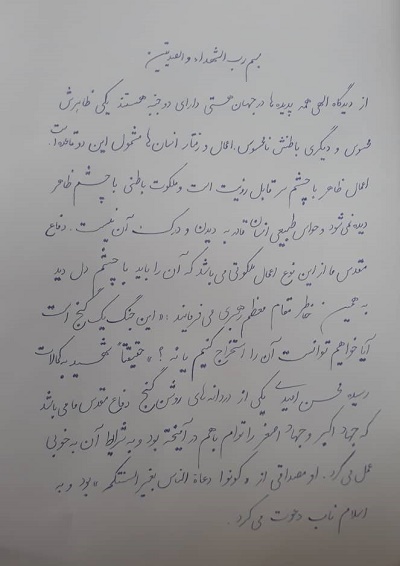 بسم رب الشهداء و الصدیقین
از دیدگاه الهی همه پدیده‌ها در جهان هستی دارای دو جنبه هستند یکی ظاهرش
محسوس و دیگری باطنش نامحسوس. اعمال و رفتار انسان‌ها مشمول این دو قاعده است.
اعمال ظاهر با چشم سر قابل رؤیت است و ملکوت باطنی با چشم ظاهر
دیده نمی‌شود و حواس طبیعی انسان قادر به دیدن و درک آن نیست. دفاع
مقدس ما از این نوع اعمال ملکوتی می‌باشد که آن را باید با چشم دل دید
به همین خاطر مقام معظم رهبری می‌فرمایند: «این جنگ یک گنج است
آیا خواهیم توانست آن را استخراج کنیم یا نه؟» حقیقتاً شهید به کمالات
رسیده محسن امیدی یکی از دردانه‌های روشن گنج دفاع مقدس ما می‌باشد
که جهاد اکبر و جهاد اصغر را توام با هم در آمیخته بود و به شرایط آن به خوبی
عمل می‌کرد. او مصداقی از «کونوا دعاة الناس بغیر السنتکم» بود و به
اسلام ناب دعوت می‌کرد.